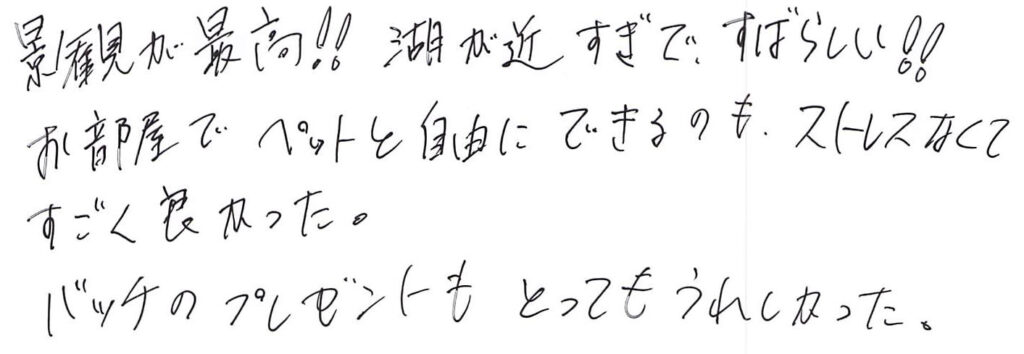 景観が最高!! 湖が近すぎで、すばらしい!!
お部屋で ペットと自由にできるのも、ストレスなくて
すごく良かった。
バッチのプレゼントも とってもうれしかった。